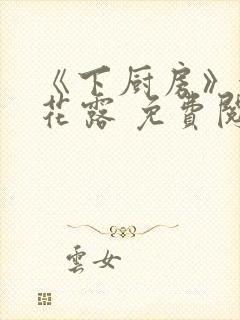 《下厨房》
花露 免費閱
雲女